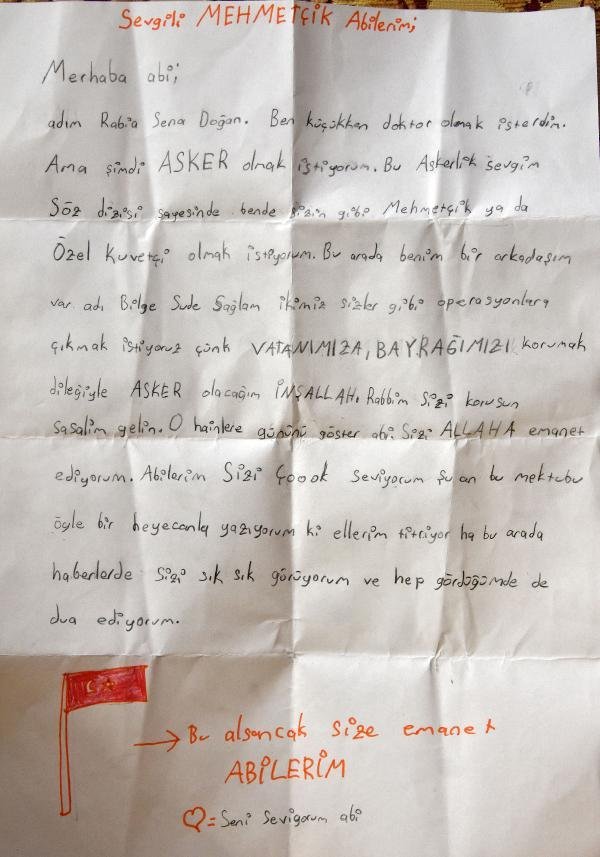 Sevgili MEHMETÇİK Abilerim;
Merhaba abi;
adım Rabia Sena Doğan. Ben küçükken doktor olmak isterdim.
Ama şimdi ASKER olmak istiyorum. Bu Askerlik sevgim
Söz dizisi sayesinde bende sizin gibi Mehmetçik ya da
Özel Kuvetçi olmak istiyorum. Bu arada benim bir arkadaşım
var adı Bilge Sude Sağlam ikimiz sizler gibi operasyonlara
çıkmak istiyoruz çünk VATANIMIZA, BAYRAĞIMIZI korumak
dileğiyle ASKER olacağım İNŞALLAH. Rabbim Sizi korusun
Sasalim gelin. O hainlere gününü göster abi Sizi ALLAHA emanet
ediyorum. Abilerim Sizi Çoook Seviyorum şu an bu mektubu
öyle bir heyecanla yazıyorum ki ellerim titriyor ha bu arada
haberlerde Sizi sık sık görüyorum ve hep gördüğümde de
dua ediyorum.
→ Bu alsancak size emanet
ABİLERİM
♡= Seni Seviyorum abi